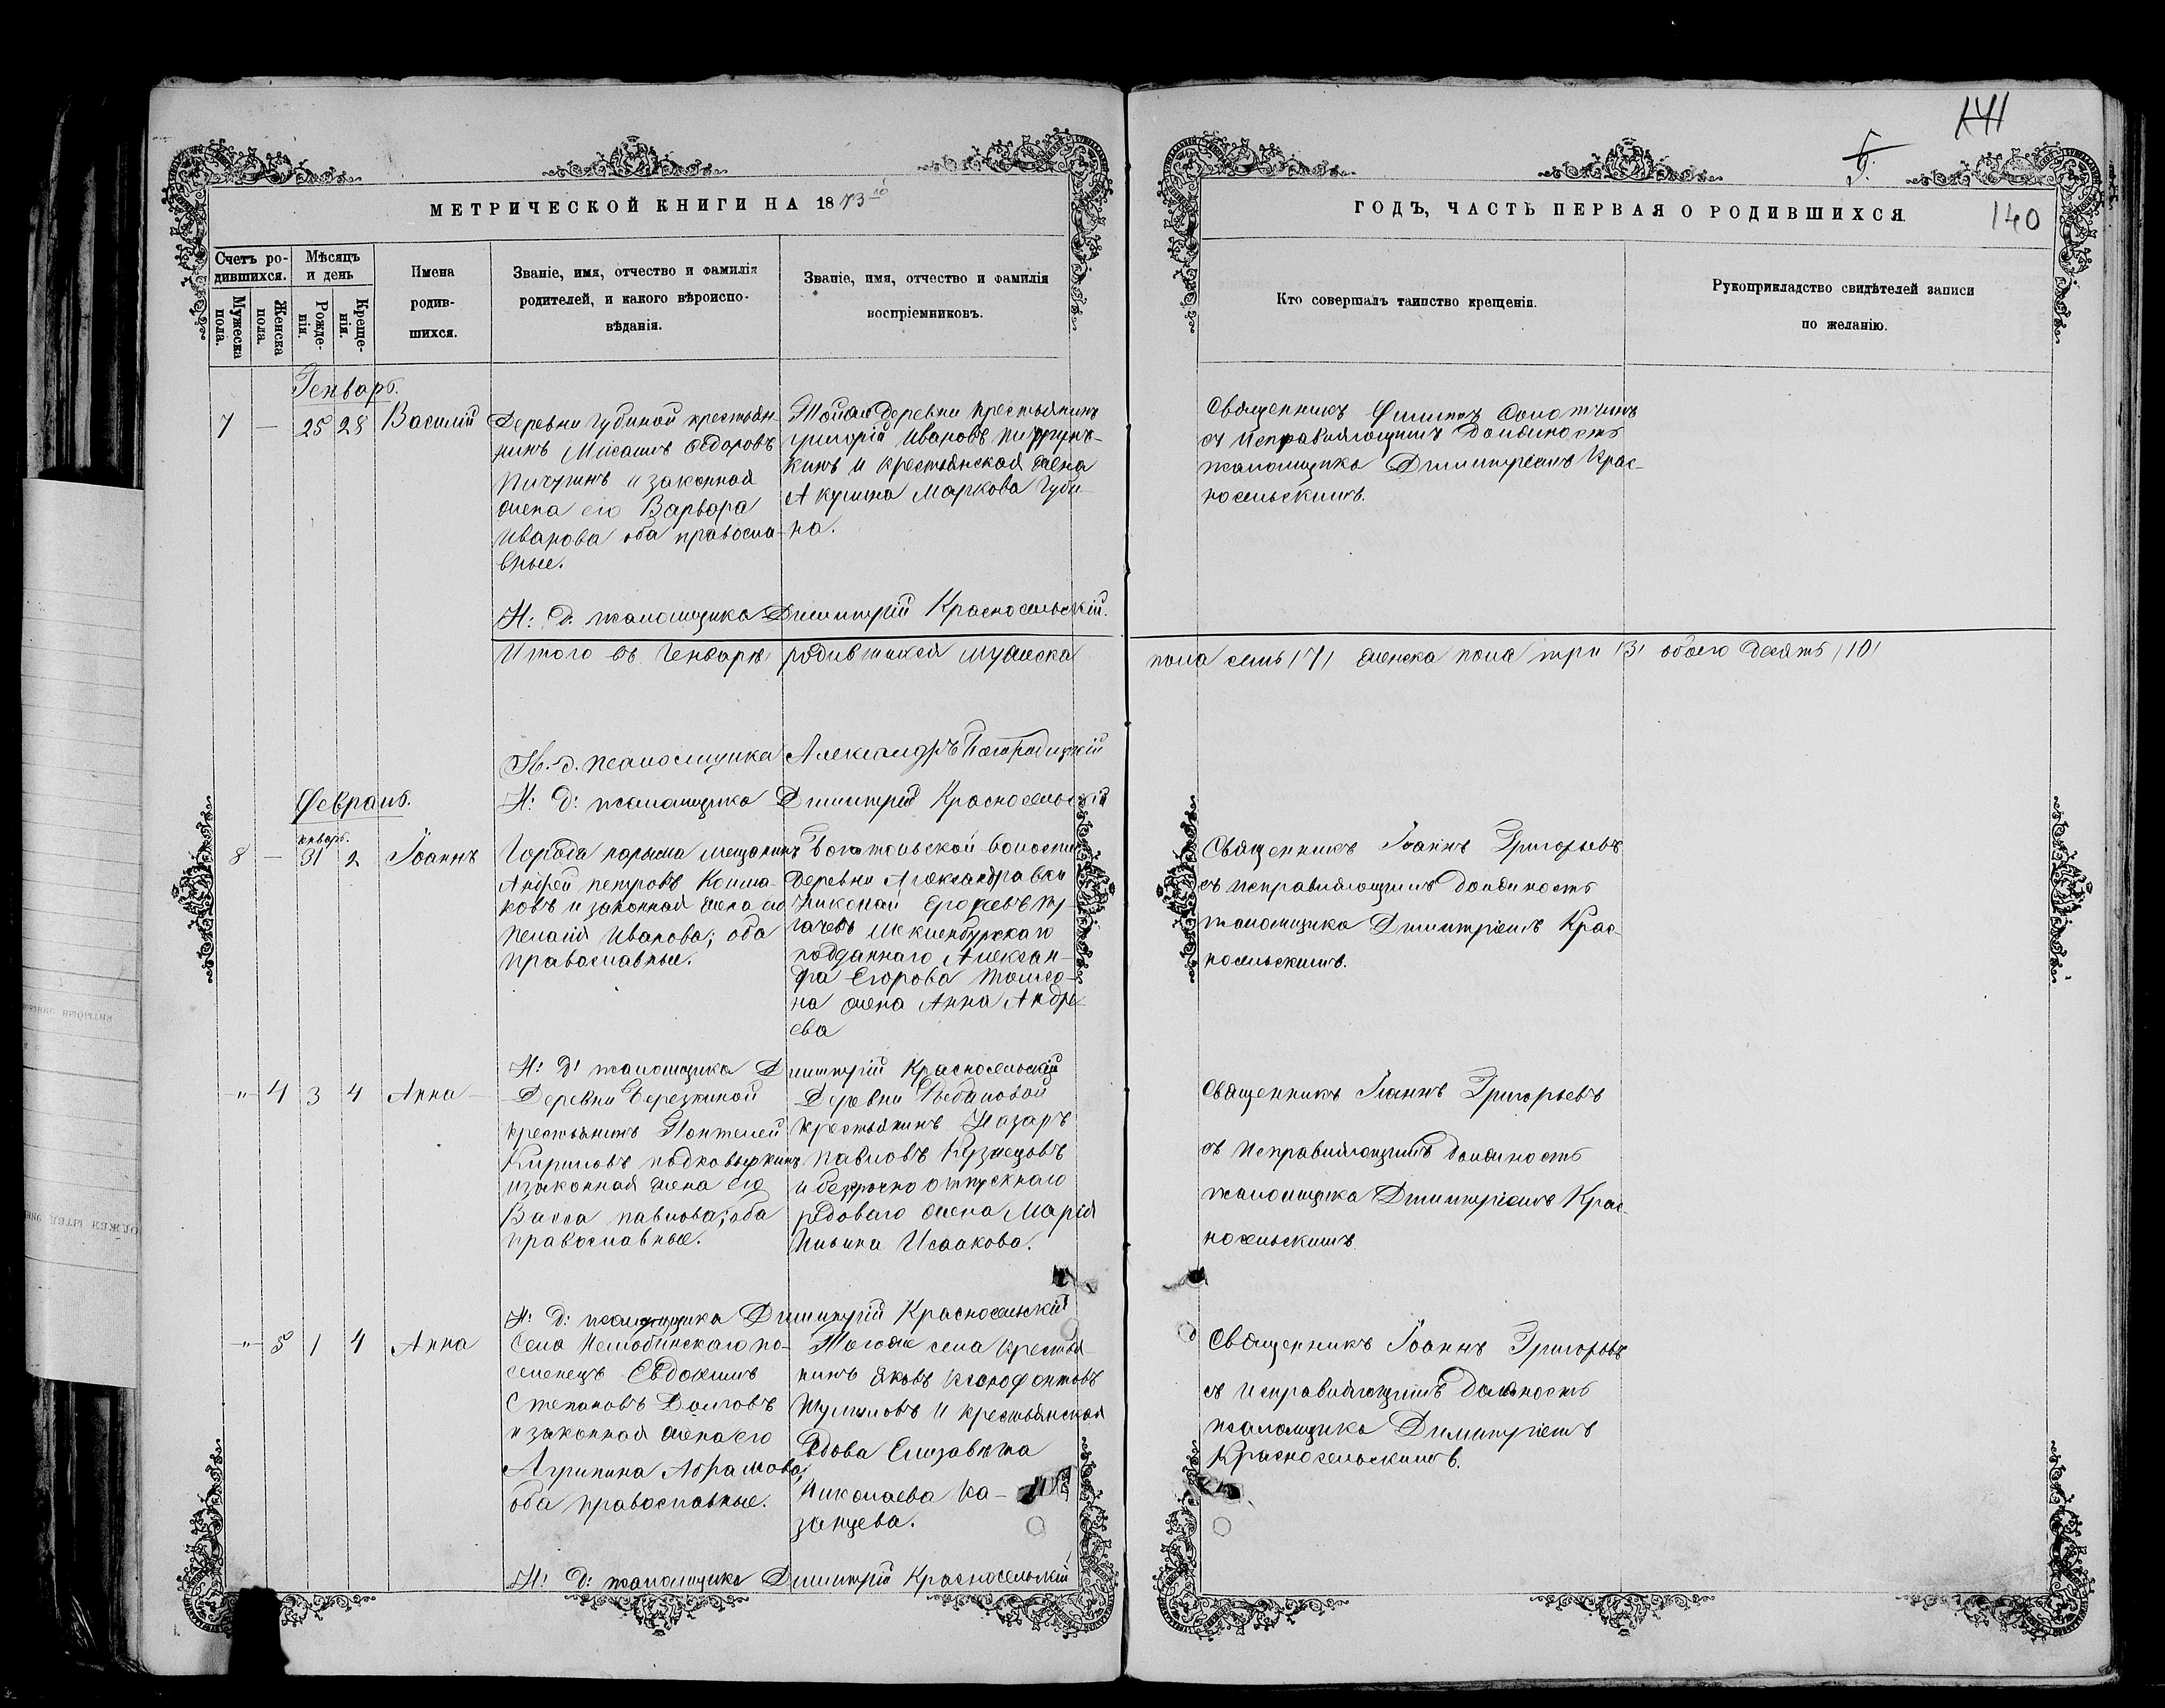 141
5.
МЕТРИЧЕСКОЙ КНИГИ НА 1873го
ГОДЪ, ЧАСТЬ ПЕРВАЯ О РОДИВШИХСЯ
140
Счетъ родившихся.
Мужеска пола.
Женска пола.
Мѣсяцъ и день
Рожденія.
Крещенія.
Имена родившихся.
Званіе, имя, отчество и фамилія
родителей, и какого вѣроиспо-
вѣданія.
Званіе, имя, отчество и фамилія
воспріемниковъ.
Кто совершалъ таинство крещенія.
Рукоприкладство свидѣтелей записи
по желанію.
Генварь.
7 — 25 28 Василій
Деревни Губиной крестьян-
нинъ Михаилъ Ѳедоровъ
Пичугинъ и законная
жена его Варвара
Иванова оба правосла-
вные.
Тойже деревни крестьянинъ
Григорій Ивановъ
кинъ и крестьянская жена
Акулина Маркова Губи-
на.
Священникъ Филиппъ
съ исправляющимъ должность
псаломщика Димитріемъ Крас-
носельскимъ.
И: д. псаломщика Димитрій Красносельскій.
Итого въ Генварѣ родившихся мужеска
пола семь /7/ женска пола три /3/ обоего десять /10/
И. д. псаломщика Александръ
Февраль.
И: д: псаломщика Димитрій Красносельскій
январь.
8 — 31 2 Іоаннъ
Города Нарыма мещанинъ
Андрей Петровъ Колма-
ковъ и законная жена его
Пелагія Иванова; оба
православные.
Боготольской волости
деревни Александровки
Николай
Мекленбургскаго
подданнаго Алексан-
дра Егорова Томсо-
на жена Анна Андре-
ева
Священникъ Іоаннъ Григорьевъ
съ исправляющимъ должность
псаломщика Димитріемъ Крас-
носельскимъ.
И: д: псаломщика Димитрій Красносельскій
" 4 3 4 Анна
Деревни Березкиной
крестьянинъ Понтелей
Кириловъ Подковыркинъ
и законная жена его
Васса Павлова; оба
православные.
Деревни
крестьянинъ Назаръ
Павловъ Кузнецовъ
и безсрочно отпускнаго
рядоваго жена Марія
Ильина Исаакова.
Священникъ Іоаннъ Григорьевъ
съ исправляющимъ должность
псаломщика Димитріемъ Крас-
носельскимъ
И: д: псаломщика Димитрій Красносельскій
" 5 1 4 Анна
Села Нелюбинскаго по-
селенецъ Евдокимъ
Степановъ Долговъ
и законная жена его
Агрипина Абрамова;
оба православные.
Тогоже села крестья-
нинъ Яковъ Ксенофонтовъ
Шумиловъ и крестьянская
вдова Елизавета
Николаева Ка-
занцева.
Священникъ Іоаннъ Григорьевъ
съ исправляющимъ должность
псаломщика Димитріемъ
Красносельскимъ.
И: д: псаломщика Димитрій Красносельскій